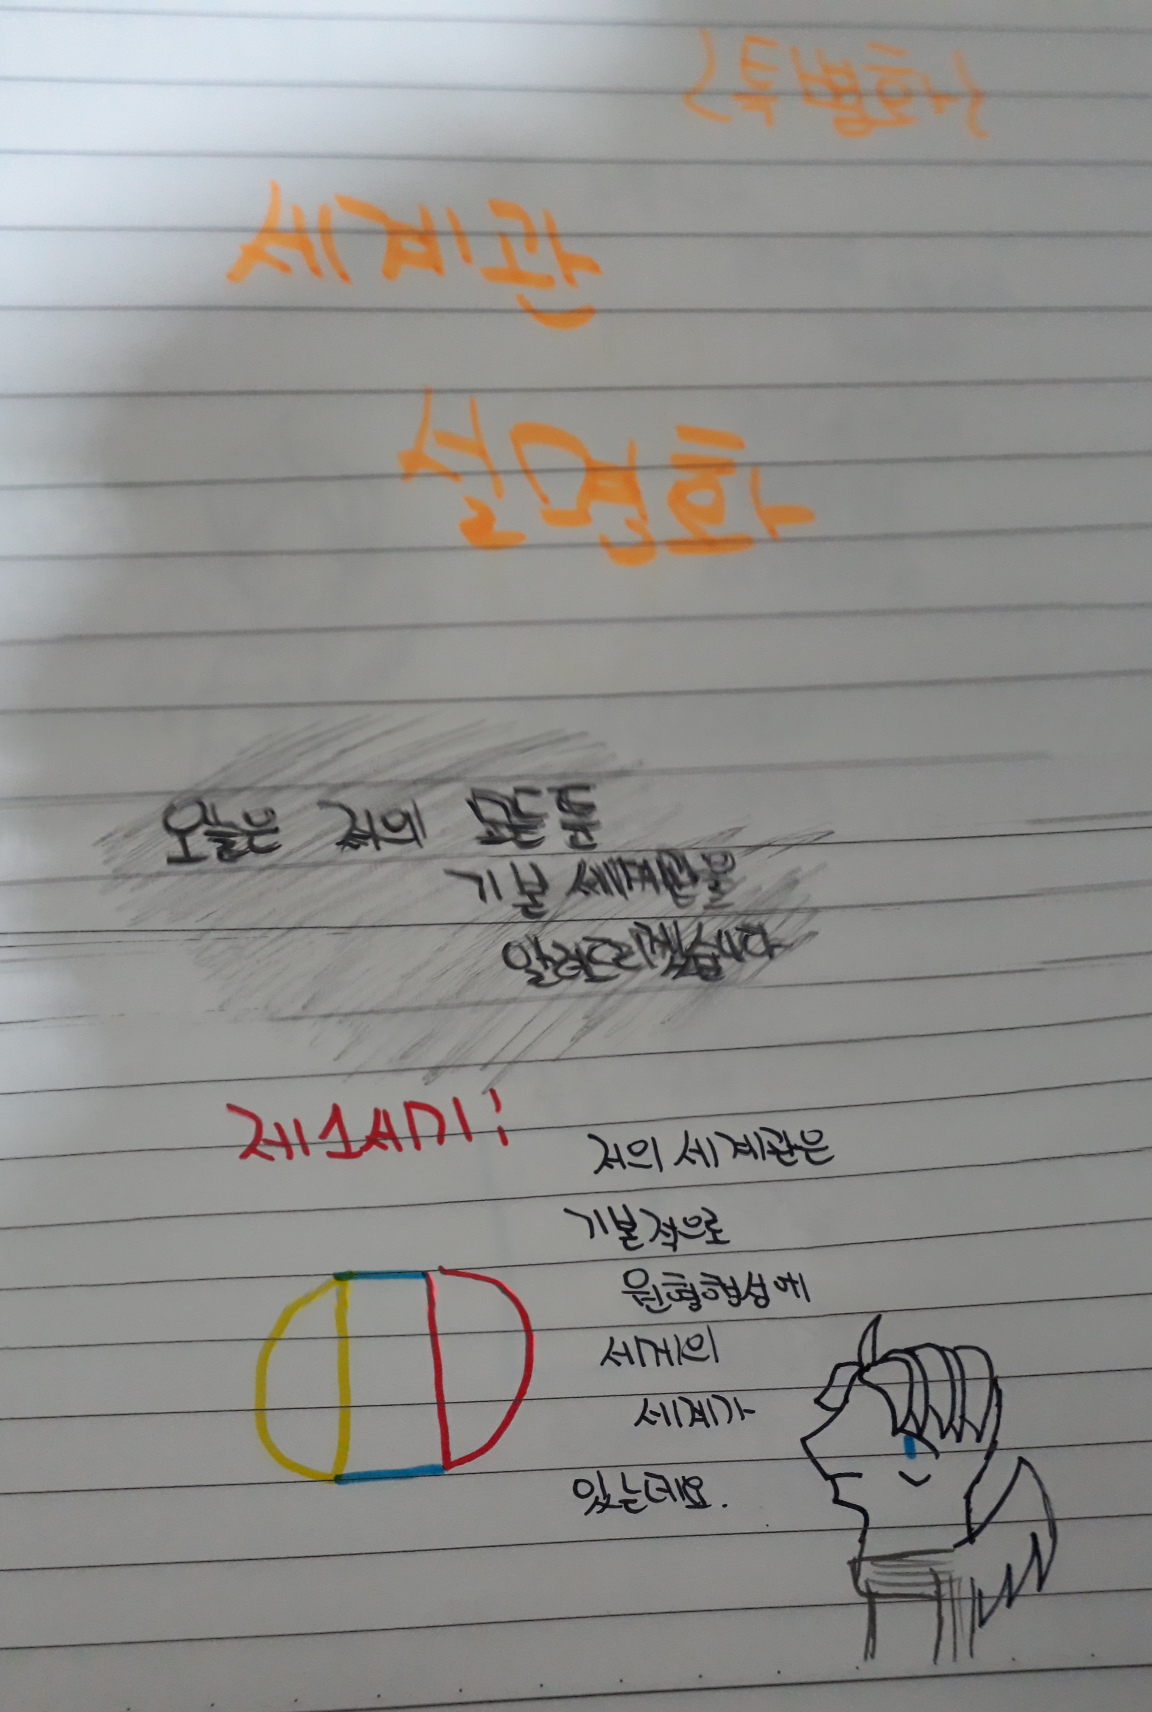 (특별화)
세계관
설명화
오늘은 저의 모든
기본 세계관을
알려드리겠습니다
제1세기:
저의 세계관은
기본적으로
원형행성에
세게의
세계가
있는데요.